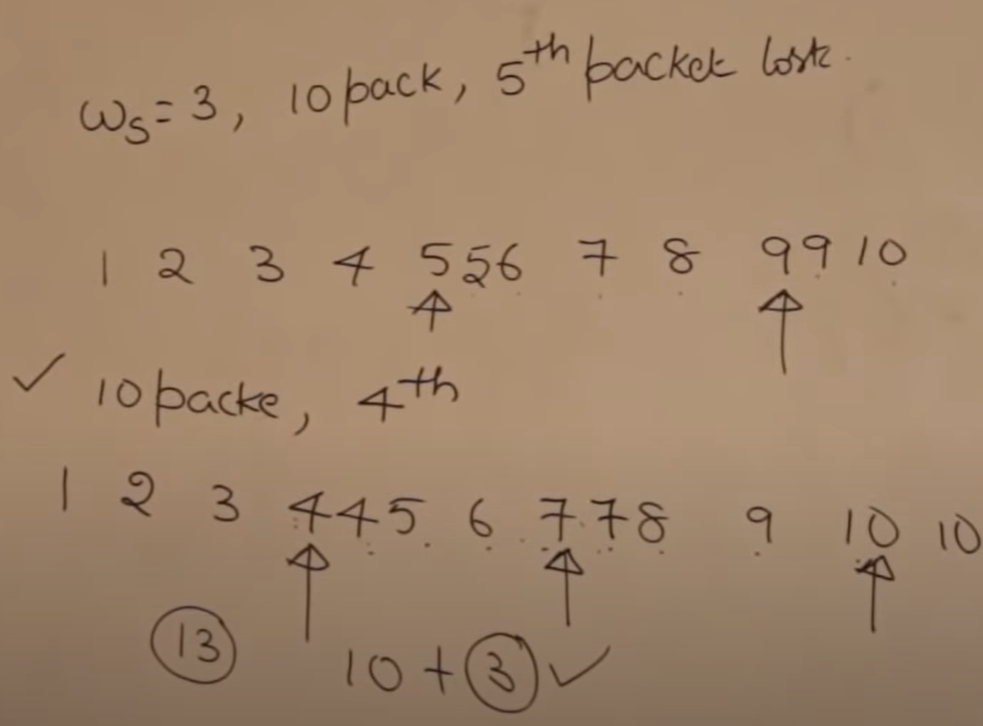 ωs = 3, 10 pack, 5th packet lost.
1 2 3 4 5 5 6 7 8 9 9 10
✓ 10 packe, 4th
1 2 3 4 4 5 6 7 7 8 9 10 10
13 10 + 3 ✓